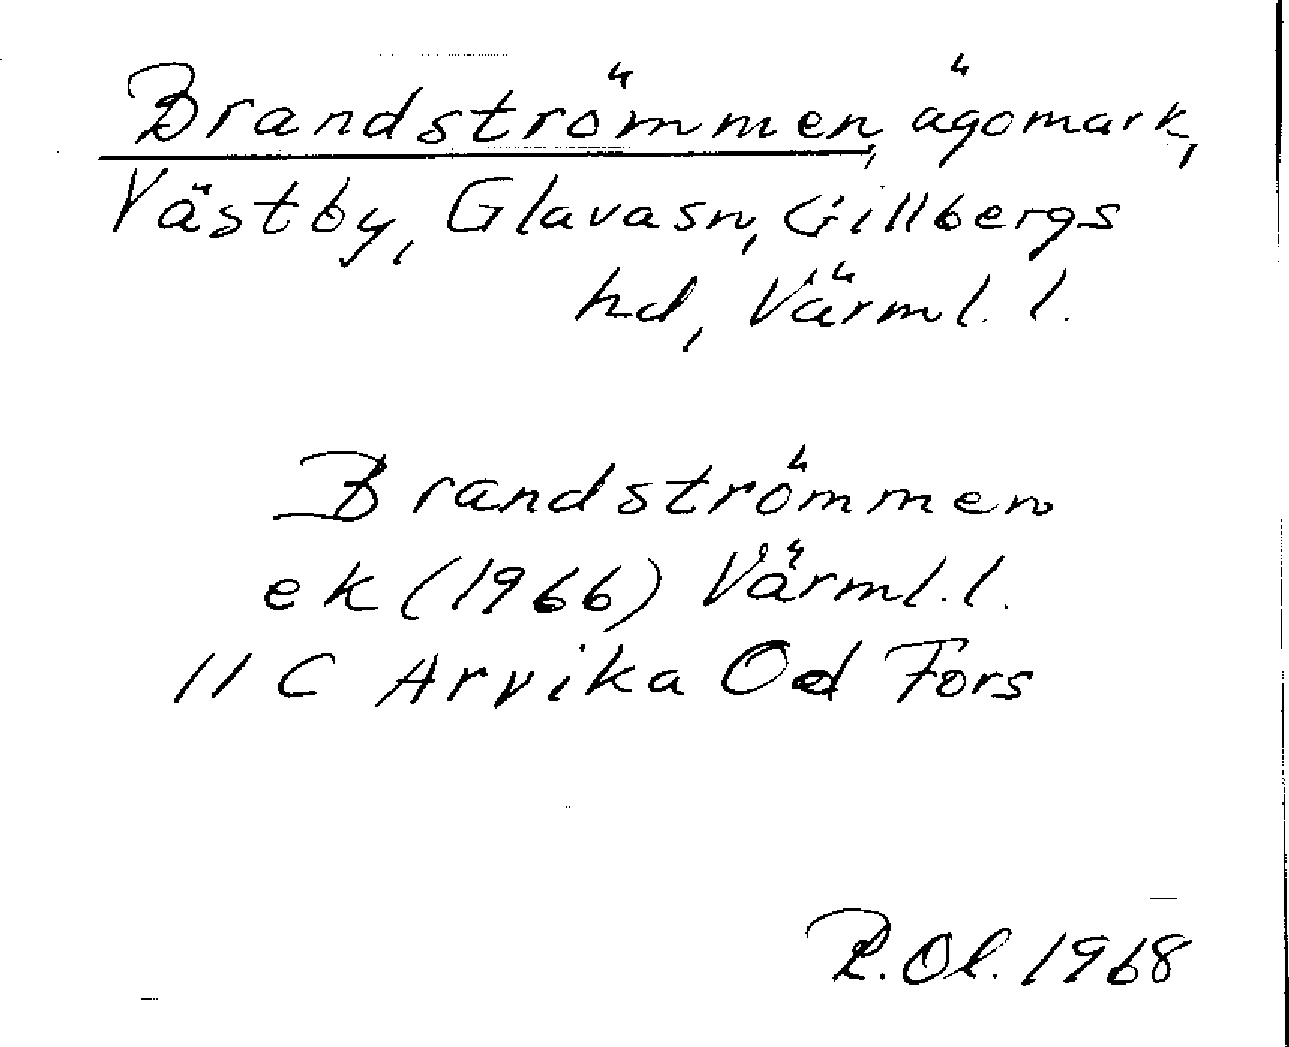 Brandströmmen, ägomark,
Västby, Glavasn, Gillbergs
hd, Värml. l.
Brandströmmen
ek (1966) Värml. l.
11 C Arvika Od Fors
R. Ol. 1968